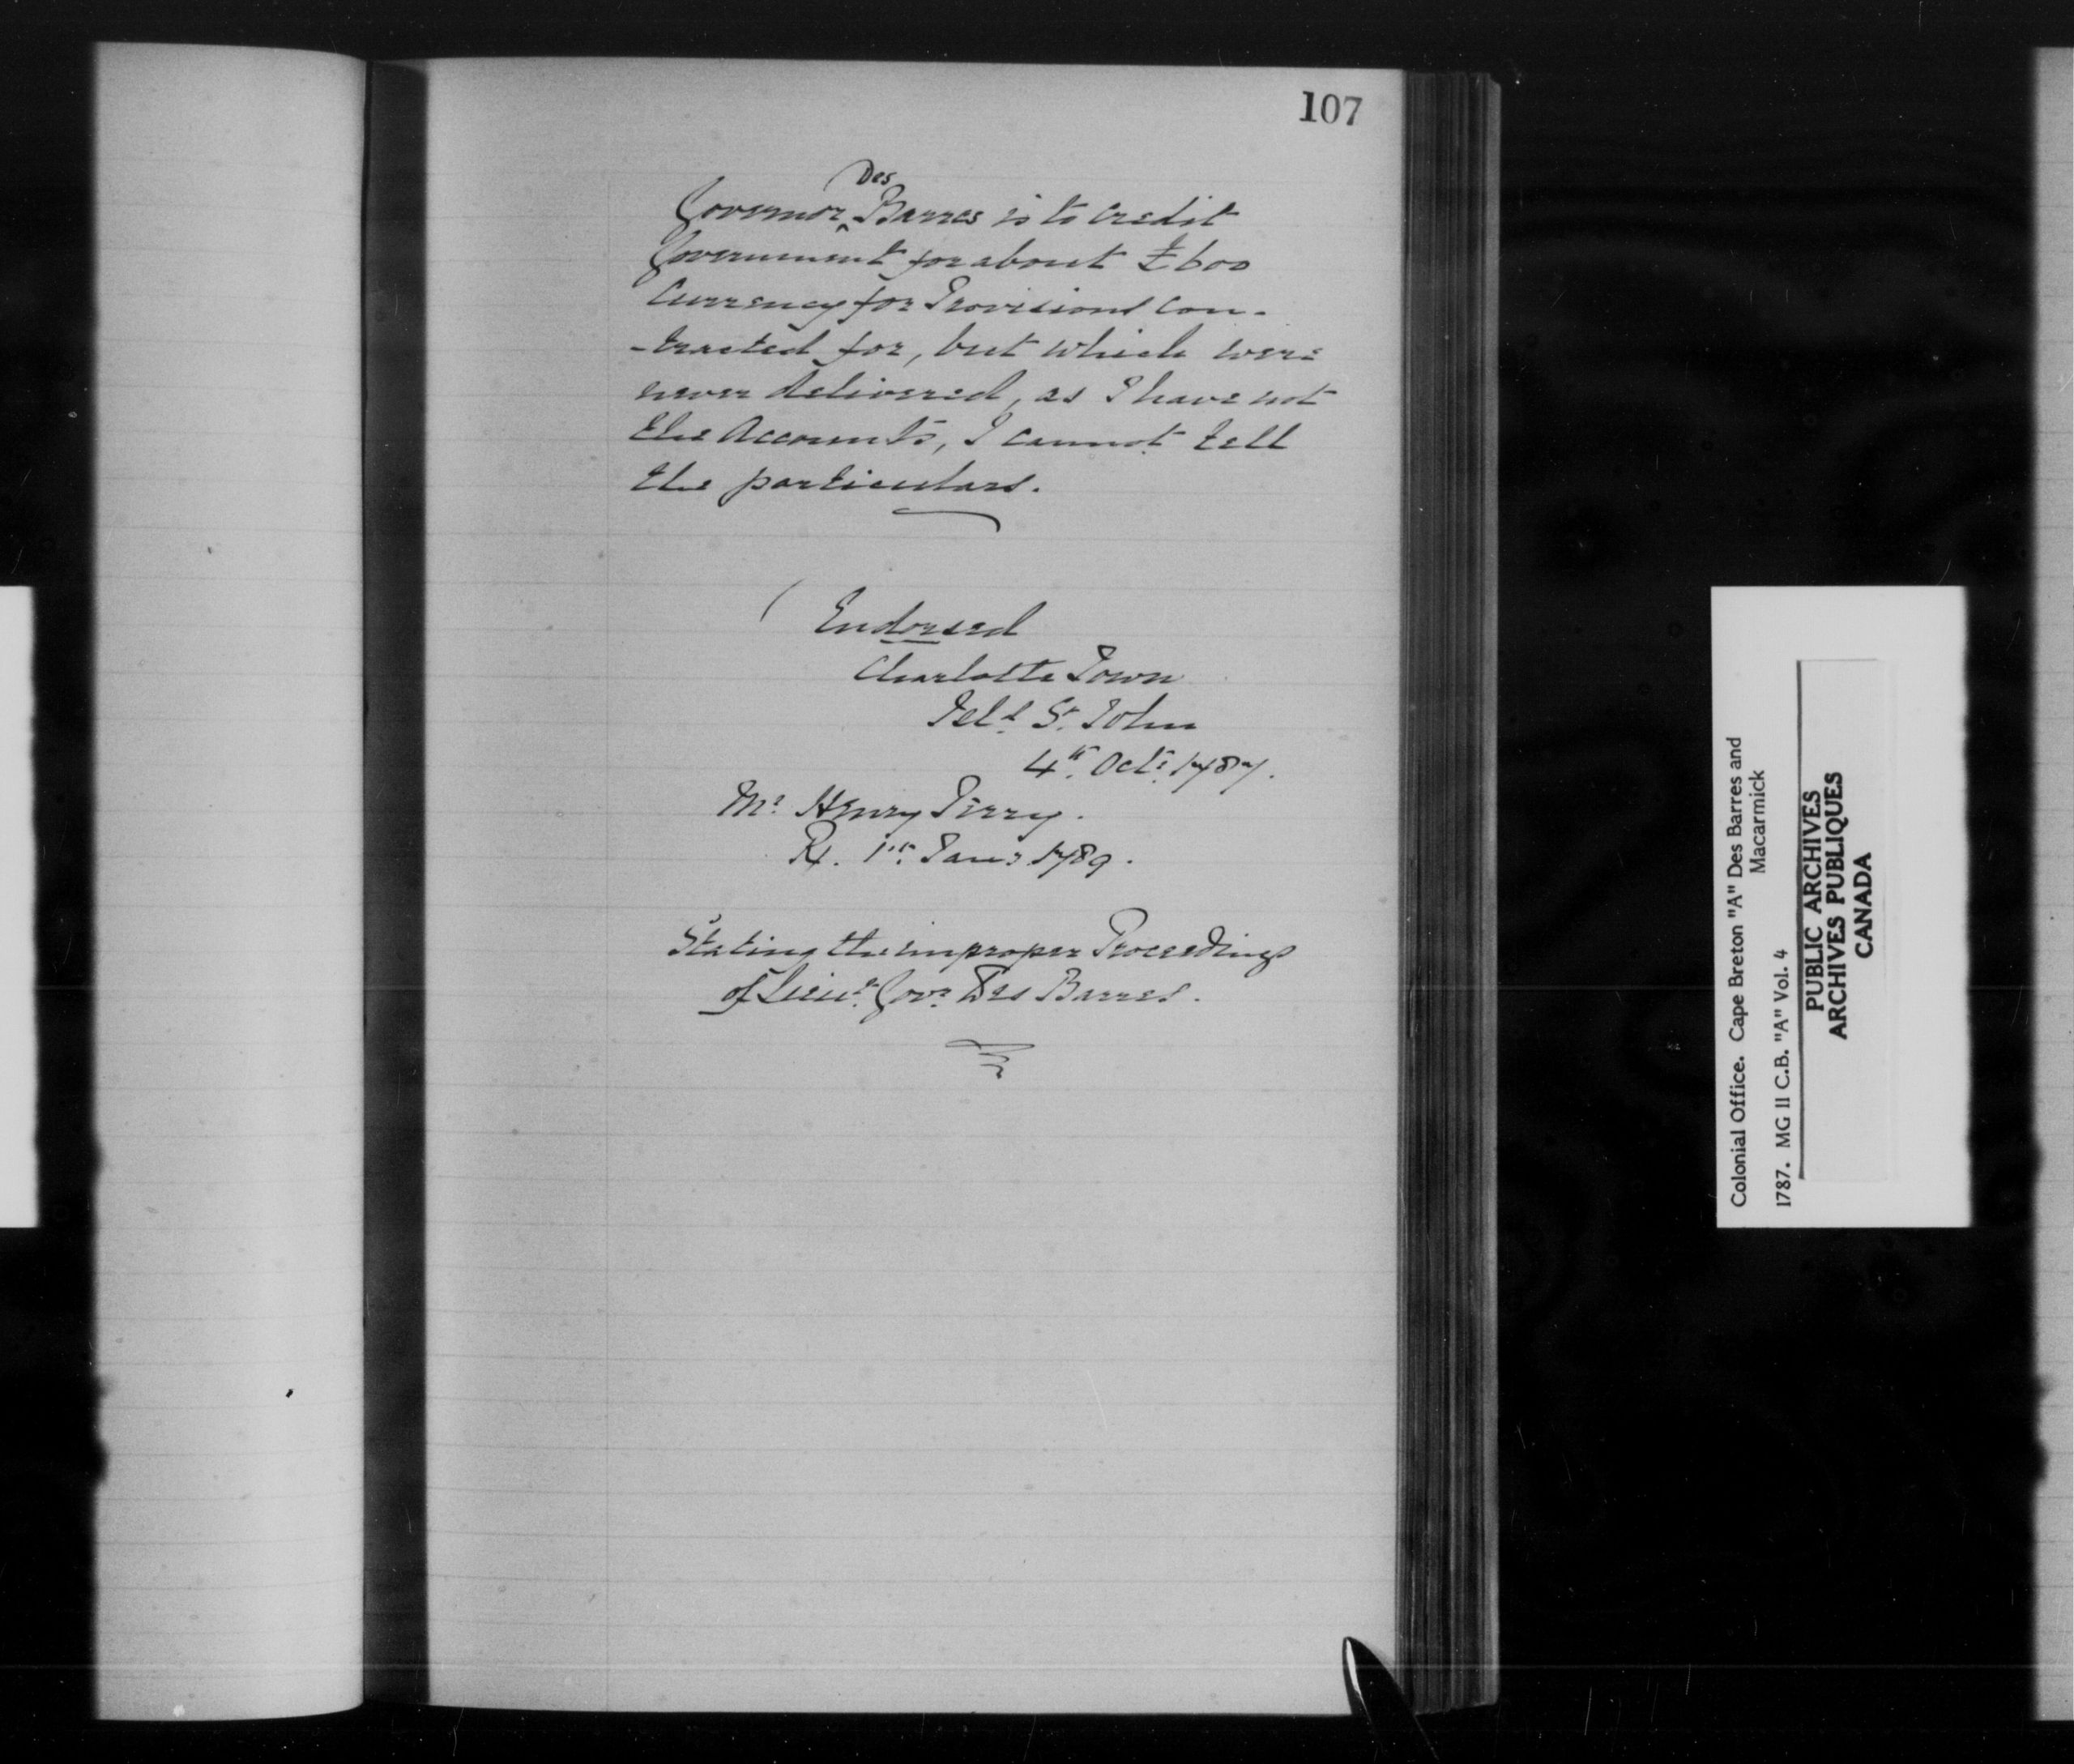 107
Governor ^Des Barres is to credit
Government for about £600
Currency for Provisions con-
-tracted for, but which were
never delivered, as I have not
the Accounts, I cannot tell
the particulars.
Endorsed
Charlotte Town
Isld. St. John
4th. Octr. 1787.
Mr. Henry Perry.
Rx. 1st. Jany. 1789.
Stating the improper Proceedings
of Lieut. Govr. Des Barres.
Colonial Office. Cape Breton "A" Des Barres and
Macarmick
1787. MG 11 C.B. "A" Vol. 4
PUBLIC ARCHIVES
ARCHIVES PUBLIQUES
CANADA